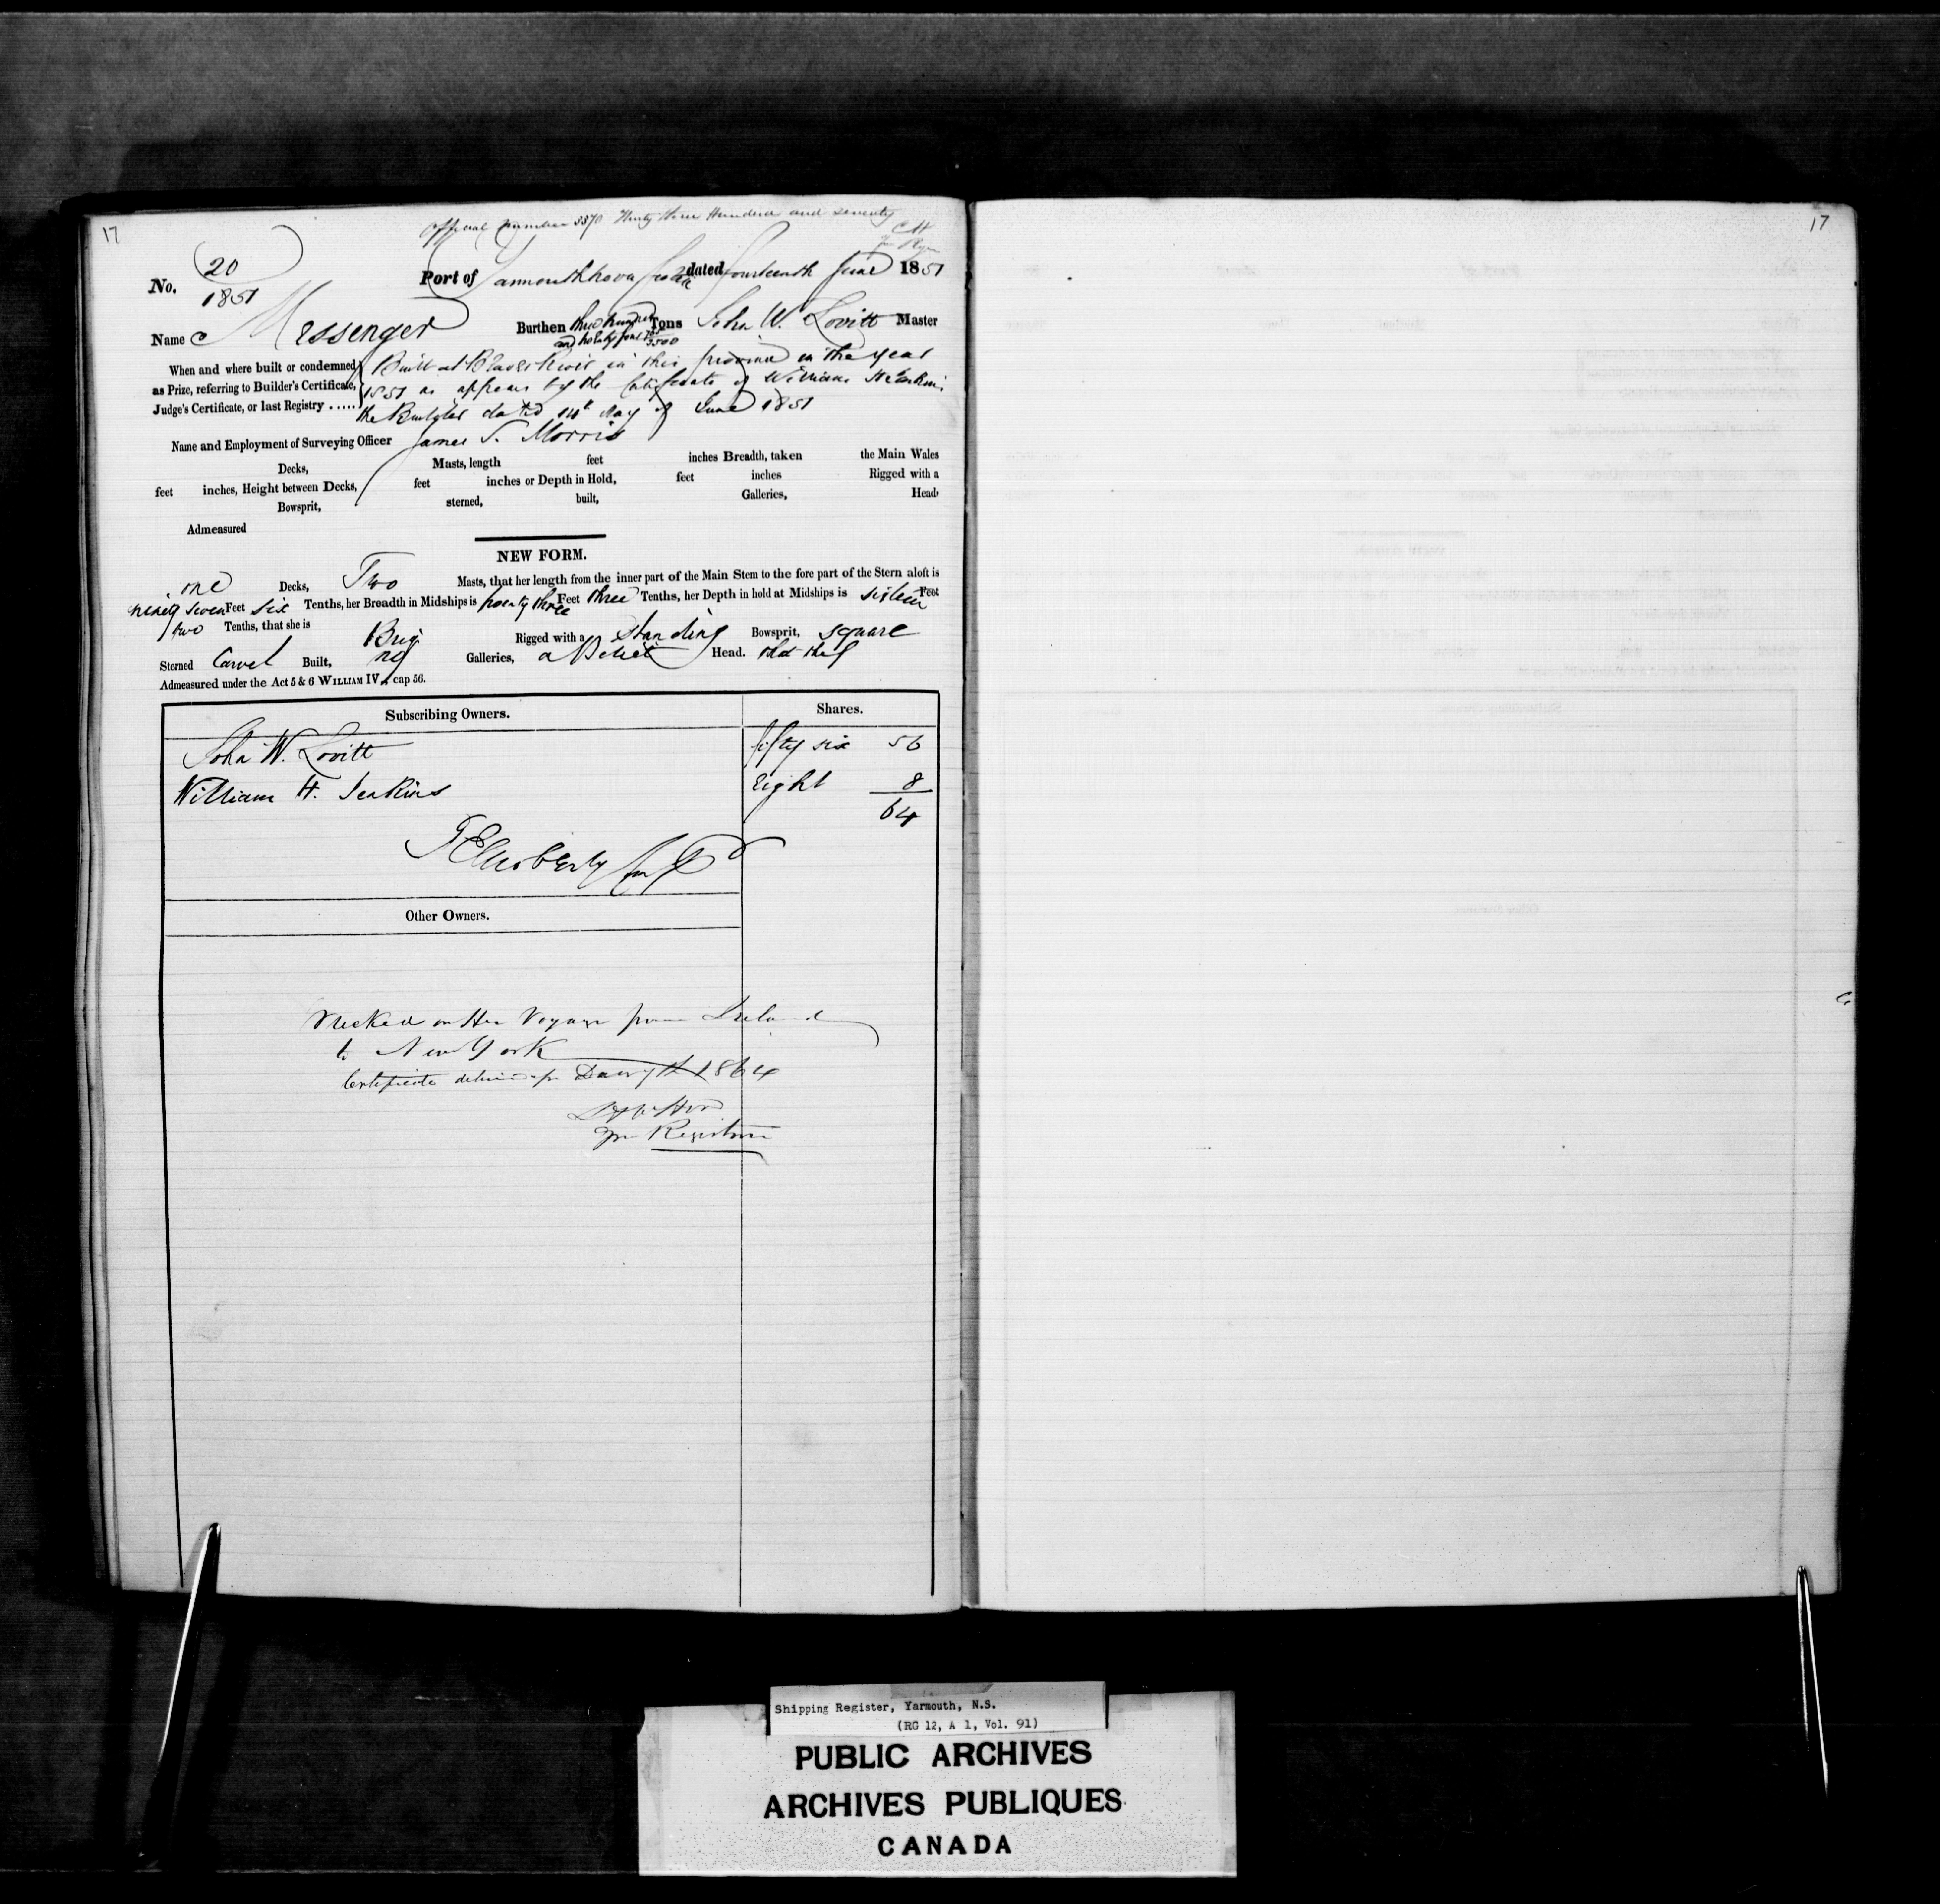 17
Official number 3370 Thirty three Hundred and seventy
No. 20
1851
Port of Yarmouth Nova Scotia dated fourteenth June 1851
Name Messenger Burthen three hundred Tons John W. Lovitt Master
3500
When and where built or condemned
as Prize, referring to Builder's Certificate,
Judge's Certificate, or last Registry .....
Built at in this province in the year
1851 as appears by the Certificate of William H Jenkins
the Builder dated 14th day of June 1851
Name and Employment of Surveying Officer James S. Morris
Decks, Masts, length feet inches Breadth, taken the Main Wales
feet inches, Height between Decks, feet inches or Depth in Hold, feet inches Rigged with a
Bowsprit, sterned, built, Galleries, Head,
Admeasured
NEW FORM.
one Decks, Two Masts, that her length from the inner part of the Main Stem to the fore part of the Stern aloft is
ninety seven Feet six Tenths, her Breadth in Midships is twenty three Feet three Tenths, her Depth in hold at Midships is sixteen Feet
two Tenths, that she is Brig Rigged with a Standing Bowsprit, square
Sterned Carvel Built, no Galleries, a Billet Head.
Admeasured under the Act 5 & 6 WILLIAM IV., cap 56.
Subscribing Owners. Shares.
John W. Lovitt fifty six 56
William H. Jenkins Eight 8
64
Other Owners.
Wrecked on Her Voyage from Ireland
to New York
Certificate 1864
Registrar
17
Shipping Register, Yarmouth, N.S.
(RG 12, A 1, Vol. 91)
PUBLIC ARCHIVES
ARCHIVES PUBLIQUES
CANADA